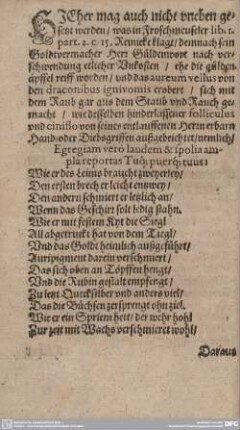 HIEher mag auch nicht vneben ge-
setzt werden / was in Froschmeuseler lib. 1.
part. 2. c. 15. Reinicke klagt / dennach sein
Goldtvermacher Herr Güldenvoet nach ver-
schwendung etlicher Vnkosten / ehe die gülden
äpffel reiff worden / vnd das aureum vellus von
den draconibus ignivomis erobert / sich mit
dem Raub gar aus dem Staub vnd Rauch ge-
macht / wie desselben hinderlassener folliculus
vnd ciniflo von seines entlauffenen Herrn erbarn
Hand oder Diebsgriffen außgebeichtet / nemlich /
Egregiam vero laudem & spolia am-
pla reportas Tuq; puerq; tuus:
Wie er des Leims braucht zweyerley /
Den ersten brech er leicht entzwey /
Den andern schmiert er letzlich an /
Wenn das Geschirr solt ledig stahn.
Wie er mit festem Kyt die Siegl
All abgetruckt hat von dem Tiegl /
Vnd das Goldt heimlich außgeführt /
Auripigment darein verschmiert /
Das sich oben an Töpffen hengt /
Vnd die Rubin gestalt empfengt /
Zu letzt Quecksilber vnd anders viel /
Das die Büchsen zersprengt ohn ziel.
Wie er ein Spriem hett / der wehr hohl
Zur zeit mit Wachs verschmieret wohl /
Daraus